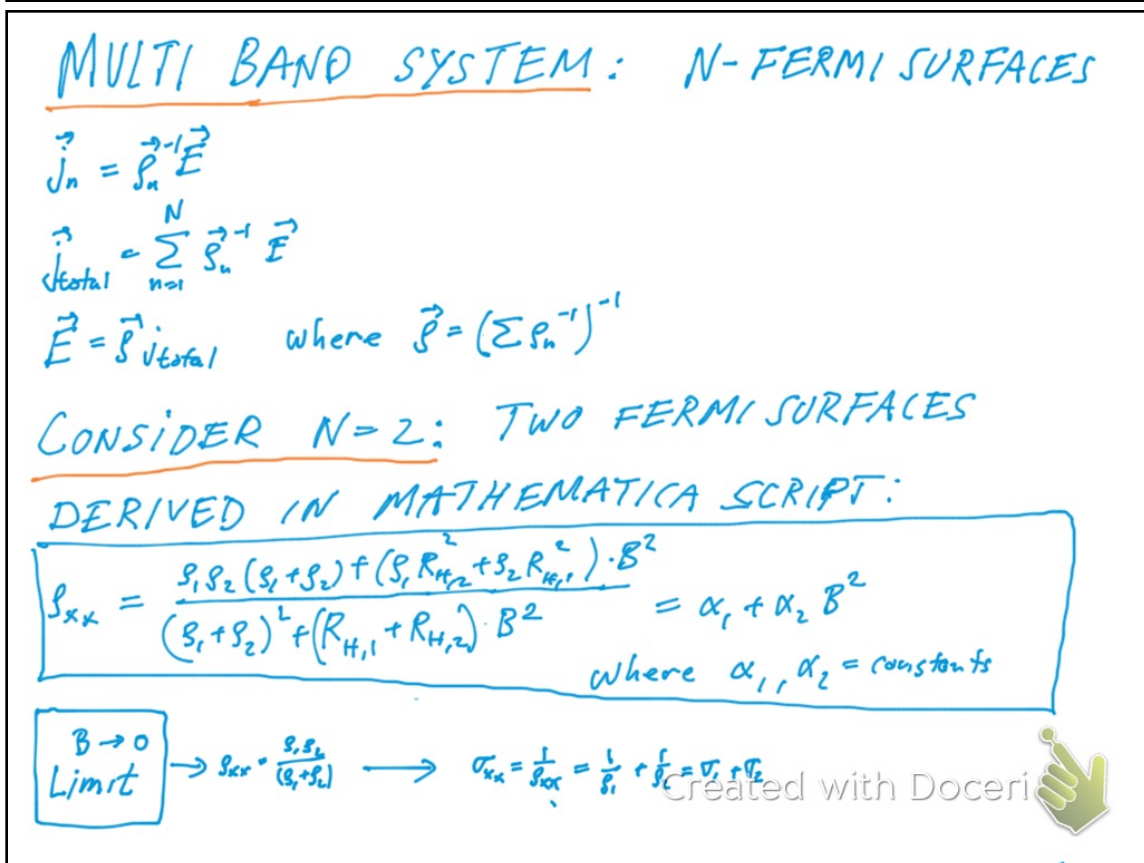 MULTI BAND SYSTEM: N-FERMI SURFACES
j⃗ₙ = ρ⃗ₙ⁻¹ E⃗
j⃗total = Σₙ₌₁ᴺ ρ⃗ₙ⁻¹ E⃗
E⃗ = ρ⃗ j⃗total where ρ⃗ = (Σ ρₙ⁻¹)⁻¹
CONSIDER N=2: TWO FERMI SURFACES
DERIVED IN MATHEMATICA SCRIPT:
ρxx = (ρ₁ρ₂(ρ₁+ρ₂) + (ρ₁R²H,2 + ρ₂R²H,1)·B²) / ((ρ₁+ρ₂)² + (RH,1 + RH,2)·B²) = α₁ + α₂ B²
where α₁, α₂ = constants
B → 0
Limit → ρxx = ρ₁ρ₂/(ρ₁+ρ₂) ⟶ σxx = 1/ρxx = 1/ρ₁ + 1/ρ₂ = σ₁ + σ₂
Created with Doceri